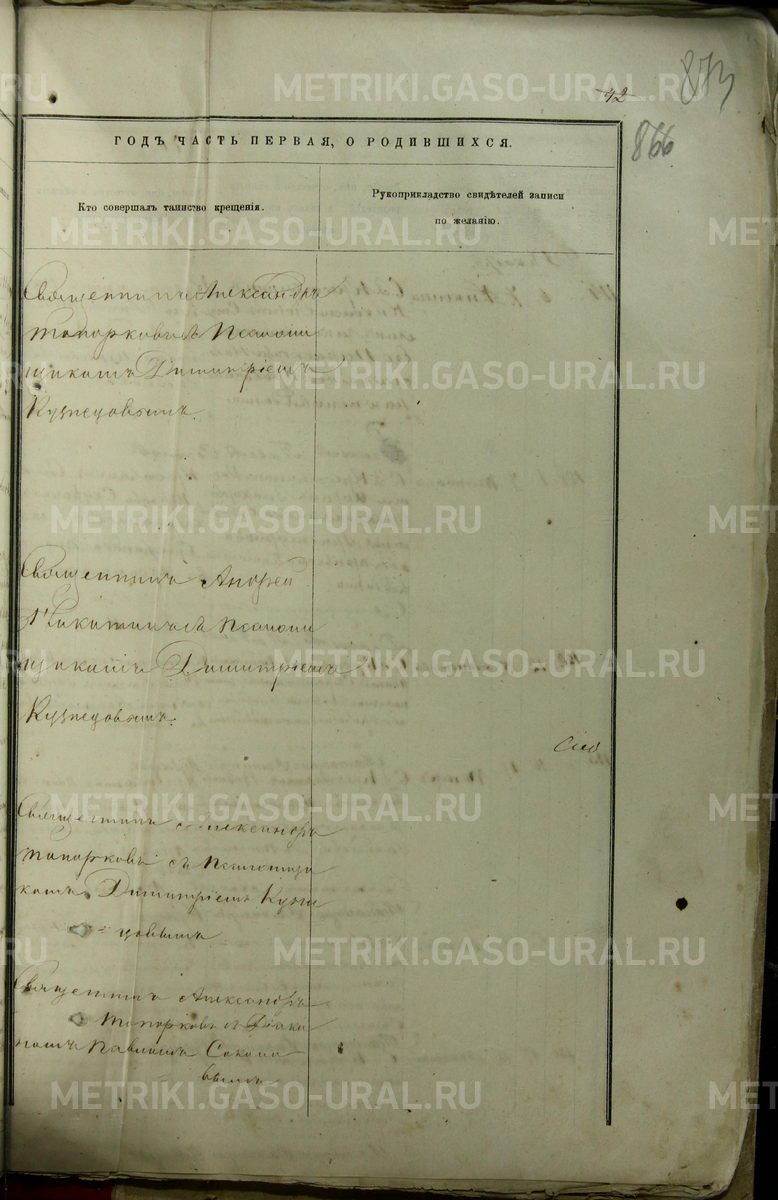 42
873
866
ГОДЪ ЧАСТЬ ПЕРВАЯ, О РОДИВШИХСЯ.
Кто совершалъ таинство крещенія.
Рукоприкладство свидѣтелей записи
по желанію.
Священникъ Александръ
Топорковъ съ Псаломщ
щикомъ Димитріемъ
Кузнецовымъ.
Священникъ Андрей
Никитинъ съ Псалом
щикомъ Димитріемъ
Кузнецовымъ.
Священникъ Александръ
Топорковъ съ Псаломщи
комъ Димитріемъ Кузне
цовымъ
Священникъ Александръ
Топорковъ съ Діако
номъ Павломъ
METRIKI.GASO-URAL.RU